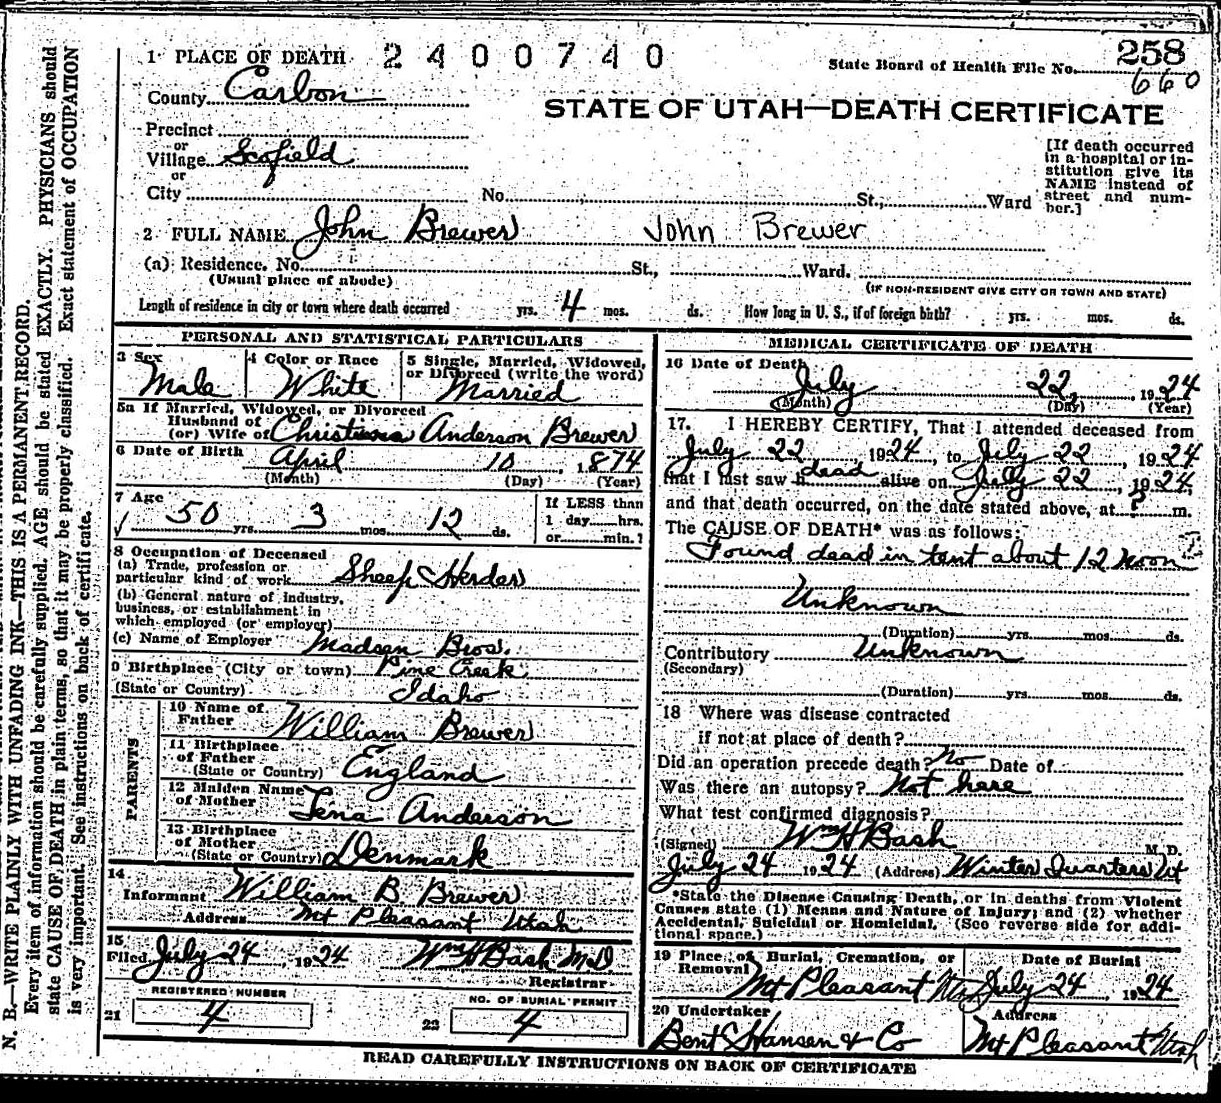 1 PLACE OF DEATH 2400740
State Board of Health File No. 258
660
County Carbon
STATE OF UTAH—DEATH CERTIFICATE
Precinct
or
Village Scofield
or
City No. St., Ward
[If death occurred
in a hospital or in-
stitution give its
NAME instead of
street and num-
ber.]
2 FULL NAME John Brewer John Brewer
(a) Residence. No. St., Ward.
(Usual place of abode) (IF NON-RESIDENT GIVE CITY OR TOWN AND STATE)
Length of residence in city or town where death occurred yrs. 4 mos. ds. How long in U. S., if of foreign birth? yrs. mos. ds.
PERSONAL AND STATISTICAL PARTICULARS
3 Sex
Male
4 Color or Race
White
5 Single, Married, Widowed,
or Divorced (write the word)
Married
5a If Married, Widowed, or Divorced
Husband of
(or) Wife of Anderson Brewer
6 Date of Birth April 10, 1874
(Month) (Day) (Year)
7 Age
50 yrs. 3 mos. 12 ds.
If LESS than
1 day hrs.
or min.?
8 Occupation of Deceased
(a) Trade, profession or
particular kind of work Sheep Herder
(b) General nature of industry,
business, or establishment in
which employed (or employer)
(c) Name of Employer Madsen Bros.
9 Birthplace (City or town) Pine Creek
(State or Country) Idaho
PARENTS
10 Name of
Father William Brewer
11 Birthplace
of Father
(State or Country) England
12 Maiden Name
of Mother Tena Anderson
13 Birthplace
of Mother
(State or Country) Denmark
14
Informant William B. Brewer
Address Mt Pleasant Utah
15
Filed July 24, 1924 Wm H Bash M.D
Registrar
REGISTERED NUMBER
21 4
NO. OF BURIAL PERMIT
22 4
MEDICAL CERTIFICATE OF DEATH
16 Date of Death
July 22, 1924
(Month) (Day) (Year)
17. I HEREBY CERTIFY, That I attended deceased from
July 22 1924, to July 22, 1924
that I last saw h dead alive on July 22, 1924,
and that death occurred, on the date stated above, at ? m.
The CAUSE OF DEATH* was as follows:
Found dead in tent about 12 noon
Unknown
(Duration) yrs. mos. ds.
Contributory Unknown
(Secondary)
(Duration) yrs. mos. ds.
18 Where was disease contracted
if not at place of death?
Did an operation precede death? No Date of
Was there an autopsy? Not here
What test confirmed diagnosis?
(Signed) Wm H Bash M.D.
July 24 1924 (Address) Winter Quarters Ut
*State the Disease Causing Death, or in deaths from Violent
Causes state (1) Means and Nature of Injury; and (2) whether
Accidental, Suicidal or Homicidal. (See reverse side for addi-
tional space.)
19 Place of Burial, Cremation, or
Removal Mt Pleasant Utah
Date of Burial
July 24, 1924
20 Undertaker
Bent Hansen & Co
Address
Mt Pleasant Utah
READ CAREFULLY INSTRUCTIONS ON BACK OF CERTIFICATE
N. B.—WRITE PLAINLY WITH UNFADING INK—THIS IS A PERMANENT RECORD.
Every item of information should be carefully supplied. AGE should be stated EXACTLY. PHYSICIANS should
state CAUSE OF DEATH in plain terms, so that it may be properly classified. Exact statement of OCCUPATION
is very important. See instructions on back of certificate.